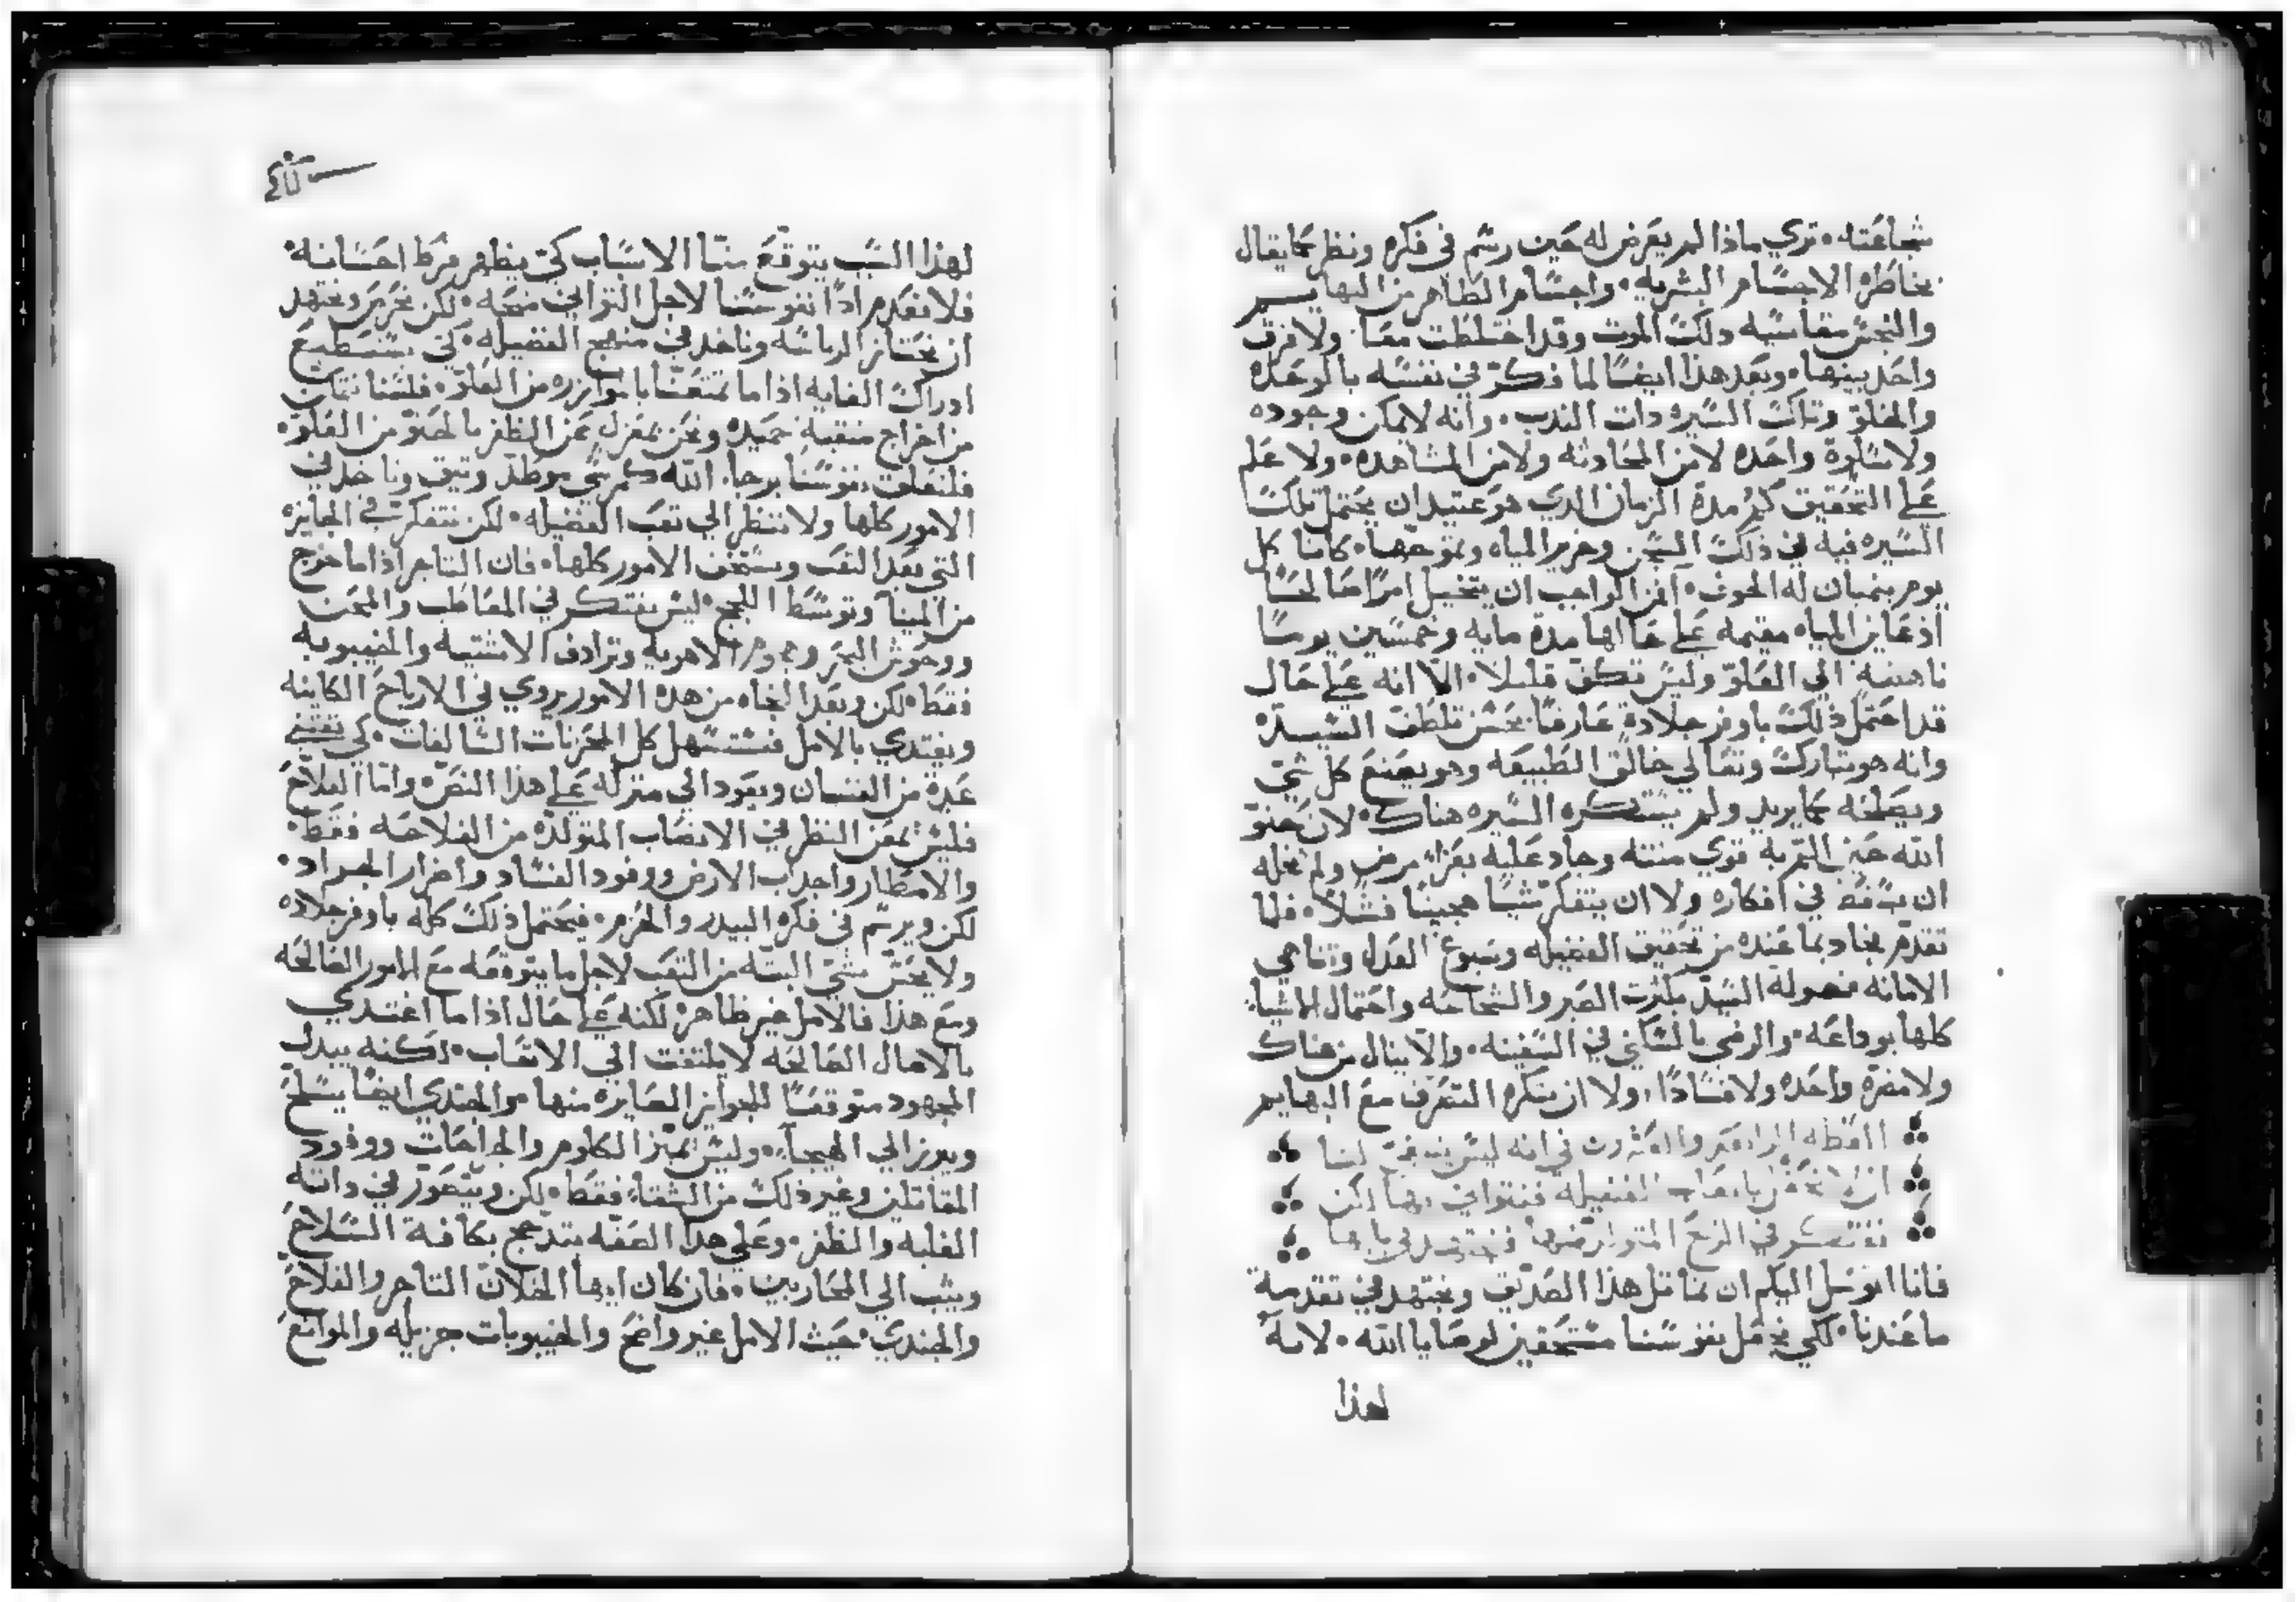 شجاعته • تري ماذا لم يعرض له حين رسم في فكره ونظر كما يقال
بخاطره الاجسام البشريه • واجسام الطاهر من البهايـــم
والنجس مقاسيه ذلك الموت وقد اختلطت معا • ولا فرق
واحد بينها • وبعد هذا ايضا لما فكر في نفسه بالوحده
والخلو وتلك السيره ذات الندب • وانه لا يمكن وجوده
ولا سلوة واحده لا من المحادثه ولا من المشاهده • ولا علم
علي التحقيق كم مدة الزمان الذي هو عتيد ان يحتمل تلك
السيره فيه في ذلك السجن وخرير المياه وتموجها • كانا كل
يوم ينميان له الخوف • افمن الواجب ان يتخيل امرا صالحا
اذ عاين المياه مقيمه علي حالها مدة مايه وخمسين يوما
ناهضه الي العلو وليس تكف قليلا • الا انه علي حال
قد احتمل ذلك باوفر جلادة عارفا بحسن تلطف السيـد
وانه هو تبارك وتعالي خالق الطبيعه وهو يصنع كل شي
ويصلحه كما يريد ولم يستكره السيره هناك • لان حنو
الله حين التجربه قوي منته وجاد عليه بعزاء مرض ولم يخله
ان يسقط في افكاره ولا ان يتفكر شيا هجينا فشلا • فلما
تقدم فجاد بما عنده من تحقيق الفضيله وسبوغ العدل وتناهي
الامانه فخوله السيد بكثرة الصبر والشجاعه واحتمال الاشياء
كلها بوداعه • والرضي بالسكني في السفينه • والا ينال من هناك
ولا مضرة واحده ولا فسادا • ولا ان يتكره التصرف مع البهايم
العظه الرابعه والعشرون في انه ليس ينبغي لنا
ان لا نحفل باتعاب الفضيله فنتواني بها لكن
نفتكر في الربح المتوافر منها فنجتهد في بابها
فانا اتوسل اليكم ان نماثل هذا الصديق ونجتهد في تقدمة
ما عندنا • لكي نجعل نفوسنا مستحقين لوصايا الله • لانه
لهذا
لهذا السبب يتوقع منا الاسباب كي يظهر فرط احسانه •
فلا نعدم اذا نفوسنا لاجل التواني منحه • لكن نحرص ونجتهد
ان نحتاز الرياسه وناخذ في منهج الفضيله • كي نستطيع
ادراك الغايه اذا ما تمتعنا بالموازره من العلو • فلسنا نتمكن
من اخراج منقبة حميده ونحن بمعزل عن الظفر بالحنو من العلو •
فلنعلق نفوسنا برجاء الله كمرسي موطد وثيق وناخذ في
الامور كلها ولا ننظر الي تعب الفضيله • لكن نتفكر في الجايزه
التي بعد التعب ونستخف الامور كلها • فان التاجر اذا ما خرج
من المينا وتوسط اللجج • ليس يفتكر في المعاطب والمحن
ووحوش البحر وهجوم الاهويه وترادف الاشتيه والخيبوبه
فقط • لكن وبعد النجاه من هذه الامور يروي في الارباح الكاينه
ويغتدي بالامل فيستسهل كل المحزنات السالفات • كي يقتني
عدة من العقيان ويعود الي منزله علي هذا النص • واما الفلاح
فليس يمعن النظر في الاتعاب المتولدة من الفلاحه فقط •
والامطار واجداب الارض ووفود الفساد واضرار الجراد •
لكن ويرسم في فكره البيدر والحزم • فيحتمل ذلك كله باوفر جلاده
ولا يحس بشي البته من التعب لاجل ما يتوقعه مع الامور الصالحه
ومع هذا فالامل غير ظاهر • لكنه علي حال اذا ما اغتـدي
بالامال الصالحه لا يلتفت الي الاتعاب • لكنه يبذل
المجهود متوقعا للجوايز الصايره منها • والجندي ايضا يتسلح
ويبرز الي الهيجاء • وليس يميز الكلوم والجراحات ووفود
المقاتلين وغير ذلك من الشقاء فقط • لكن ويتصور في ذاته
الغلبه والظفر • وعلي هذا الصفه يتدجج بكافة السلاح
ويثب الي المحاربين • فان كان ايها الخلان التاجر والفلاح
والجندي • حيث الامل غير واضح والخيبوبات جزيله والموانع